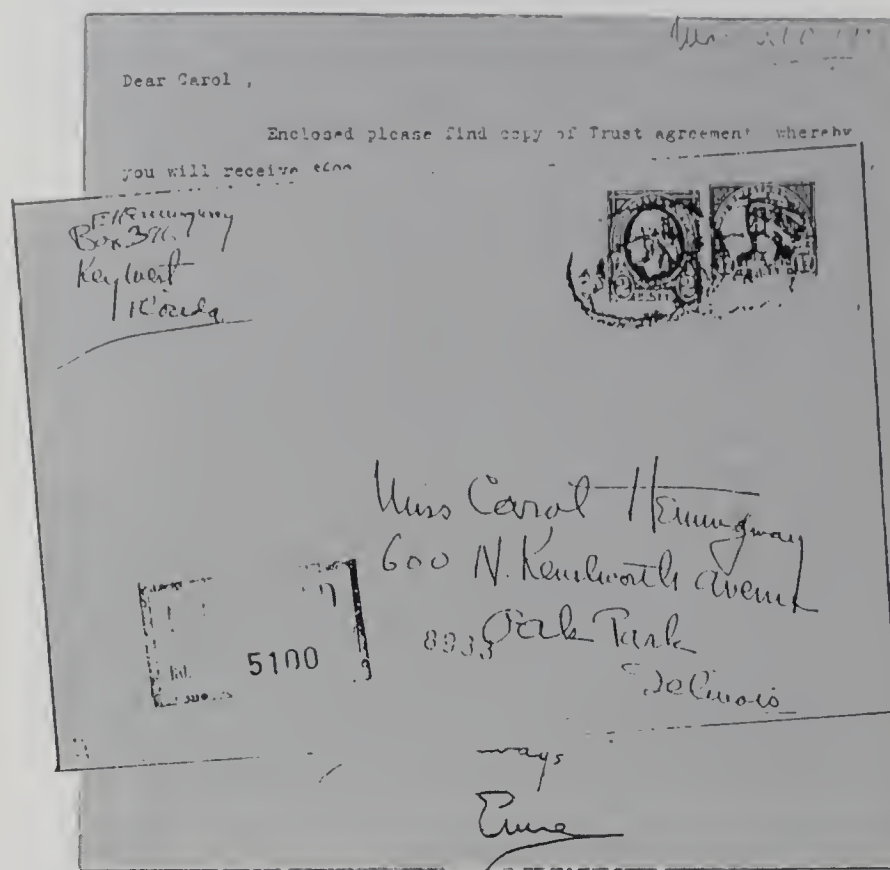 Dear Carol ,
Enclosed please find copy of Trust agreement whereby
you will receive
E Hemingway
Box 396
Key West
Florida
2 2
CENTS
Miss Carol Hemingway
600 N. Kenilworth Avenue
8933 Oak Park
Illinois
5100
ways
Ernie